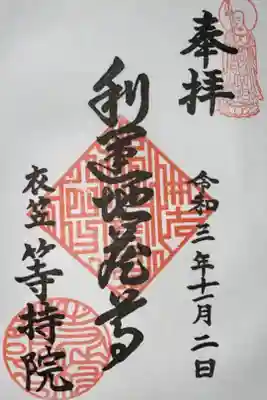 奉拝
令和三年十一月二日
利運地蔵尊
衣笠 等持院